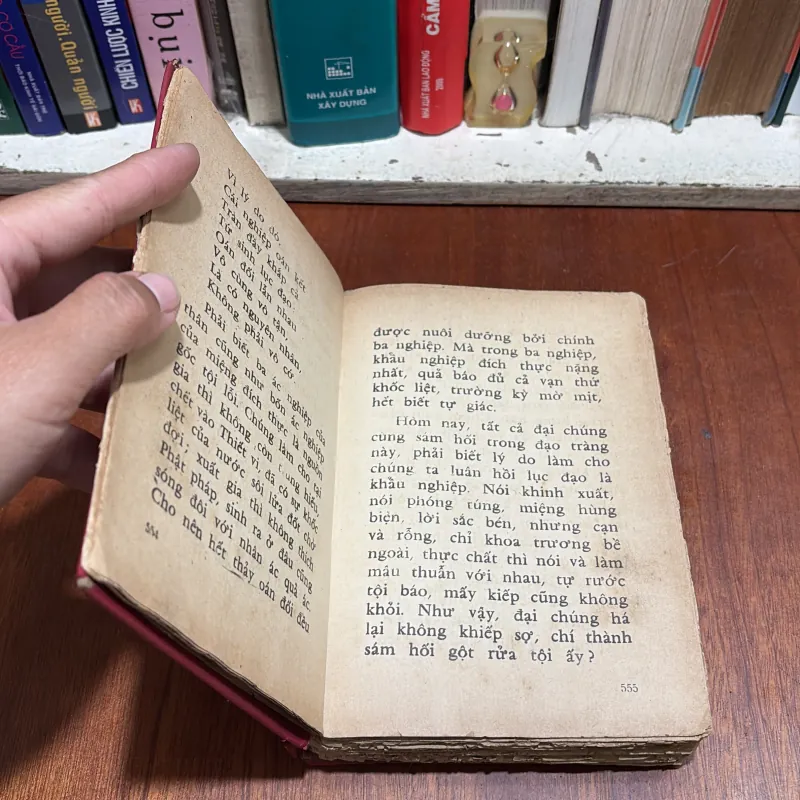 CƠ CẤU
người. Quản người
CHIẾN LƯỢC KINH
NHÀ XUẤT BẢN
XÂY DỰNG
CẨM
NHÀ XUẤT BẢN LAO ĐỘNG
Vì lý do đó,
Cái nghiệp oán kết
Tràn đầy khắp cả
Tứ sinh lục đạo
Oán đối lẫn nhau
Vô cùng vô tận,
Là có nguyên nhân,
Không phải vô cớ.
Phải biết ba ác nghiệp của
thân cũng như bốn ác nghiệp
của miệng đích thực là nguồn
gốc tội lỗi. Chúng làm cho tại
gia thì không còn trung hiếu,
chết vào Thiết vi, đã có sự khốc
liệt của nước sôi lửa đốt chờ
đợi; xuất gia thì không thích
Phật pháp, sinh ra ở đâu cũng
sóng đôi với nhân ác quả ác.
Cho nên hết thảy oán đối đều
554
được nuôi dưỡng bởi chính
ba nghiệp. Mà trong ba nghiệp,
khẩu nghiệp đích thực nặng
nhất, quả báo đủ cả vạn thứ
khốc liệt, trường kỳ mờ mịt,
hết biết tự giác.
Hôm nay, tất cả đại chúng
cùng sám hối trong đạo tràng
này, phải biết lý do làm cho
chúng ta luân hồi lục đạo là
khẩu nghiệp. Nói khinh xuất,
nói phóng túng, miệng hùng
biện, lời sắc bén, nhưng cạn
và rỗng, chỉ khoa trương bề
ngoài, thực chất thì nói và làm
mâu thuẫn với nhau, tự rước
tội báo, mấy kiếp cũng không
khỏi. Như vậy, đại chúng há
lại không khiếp sợ, chí thành
sám hối gột rửa tội ấy?
555